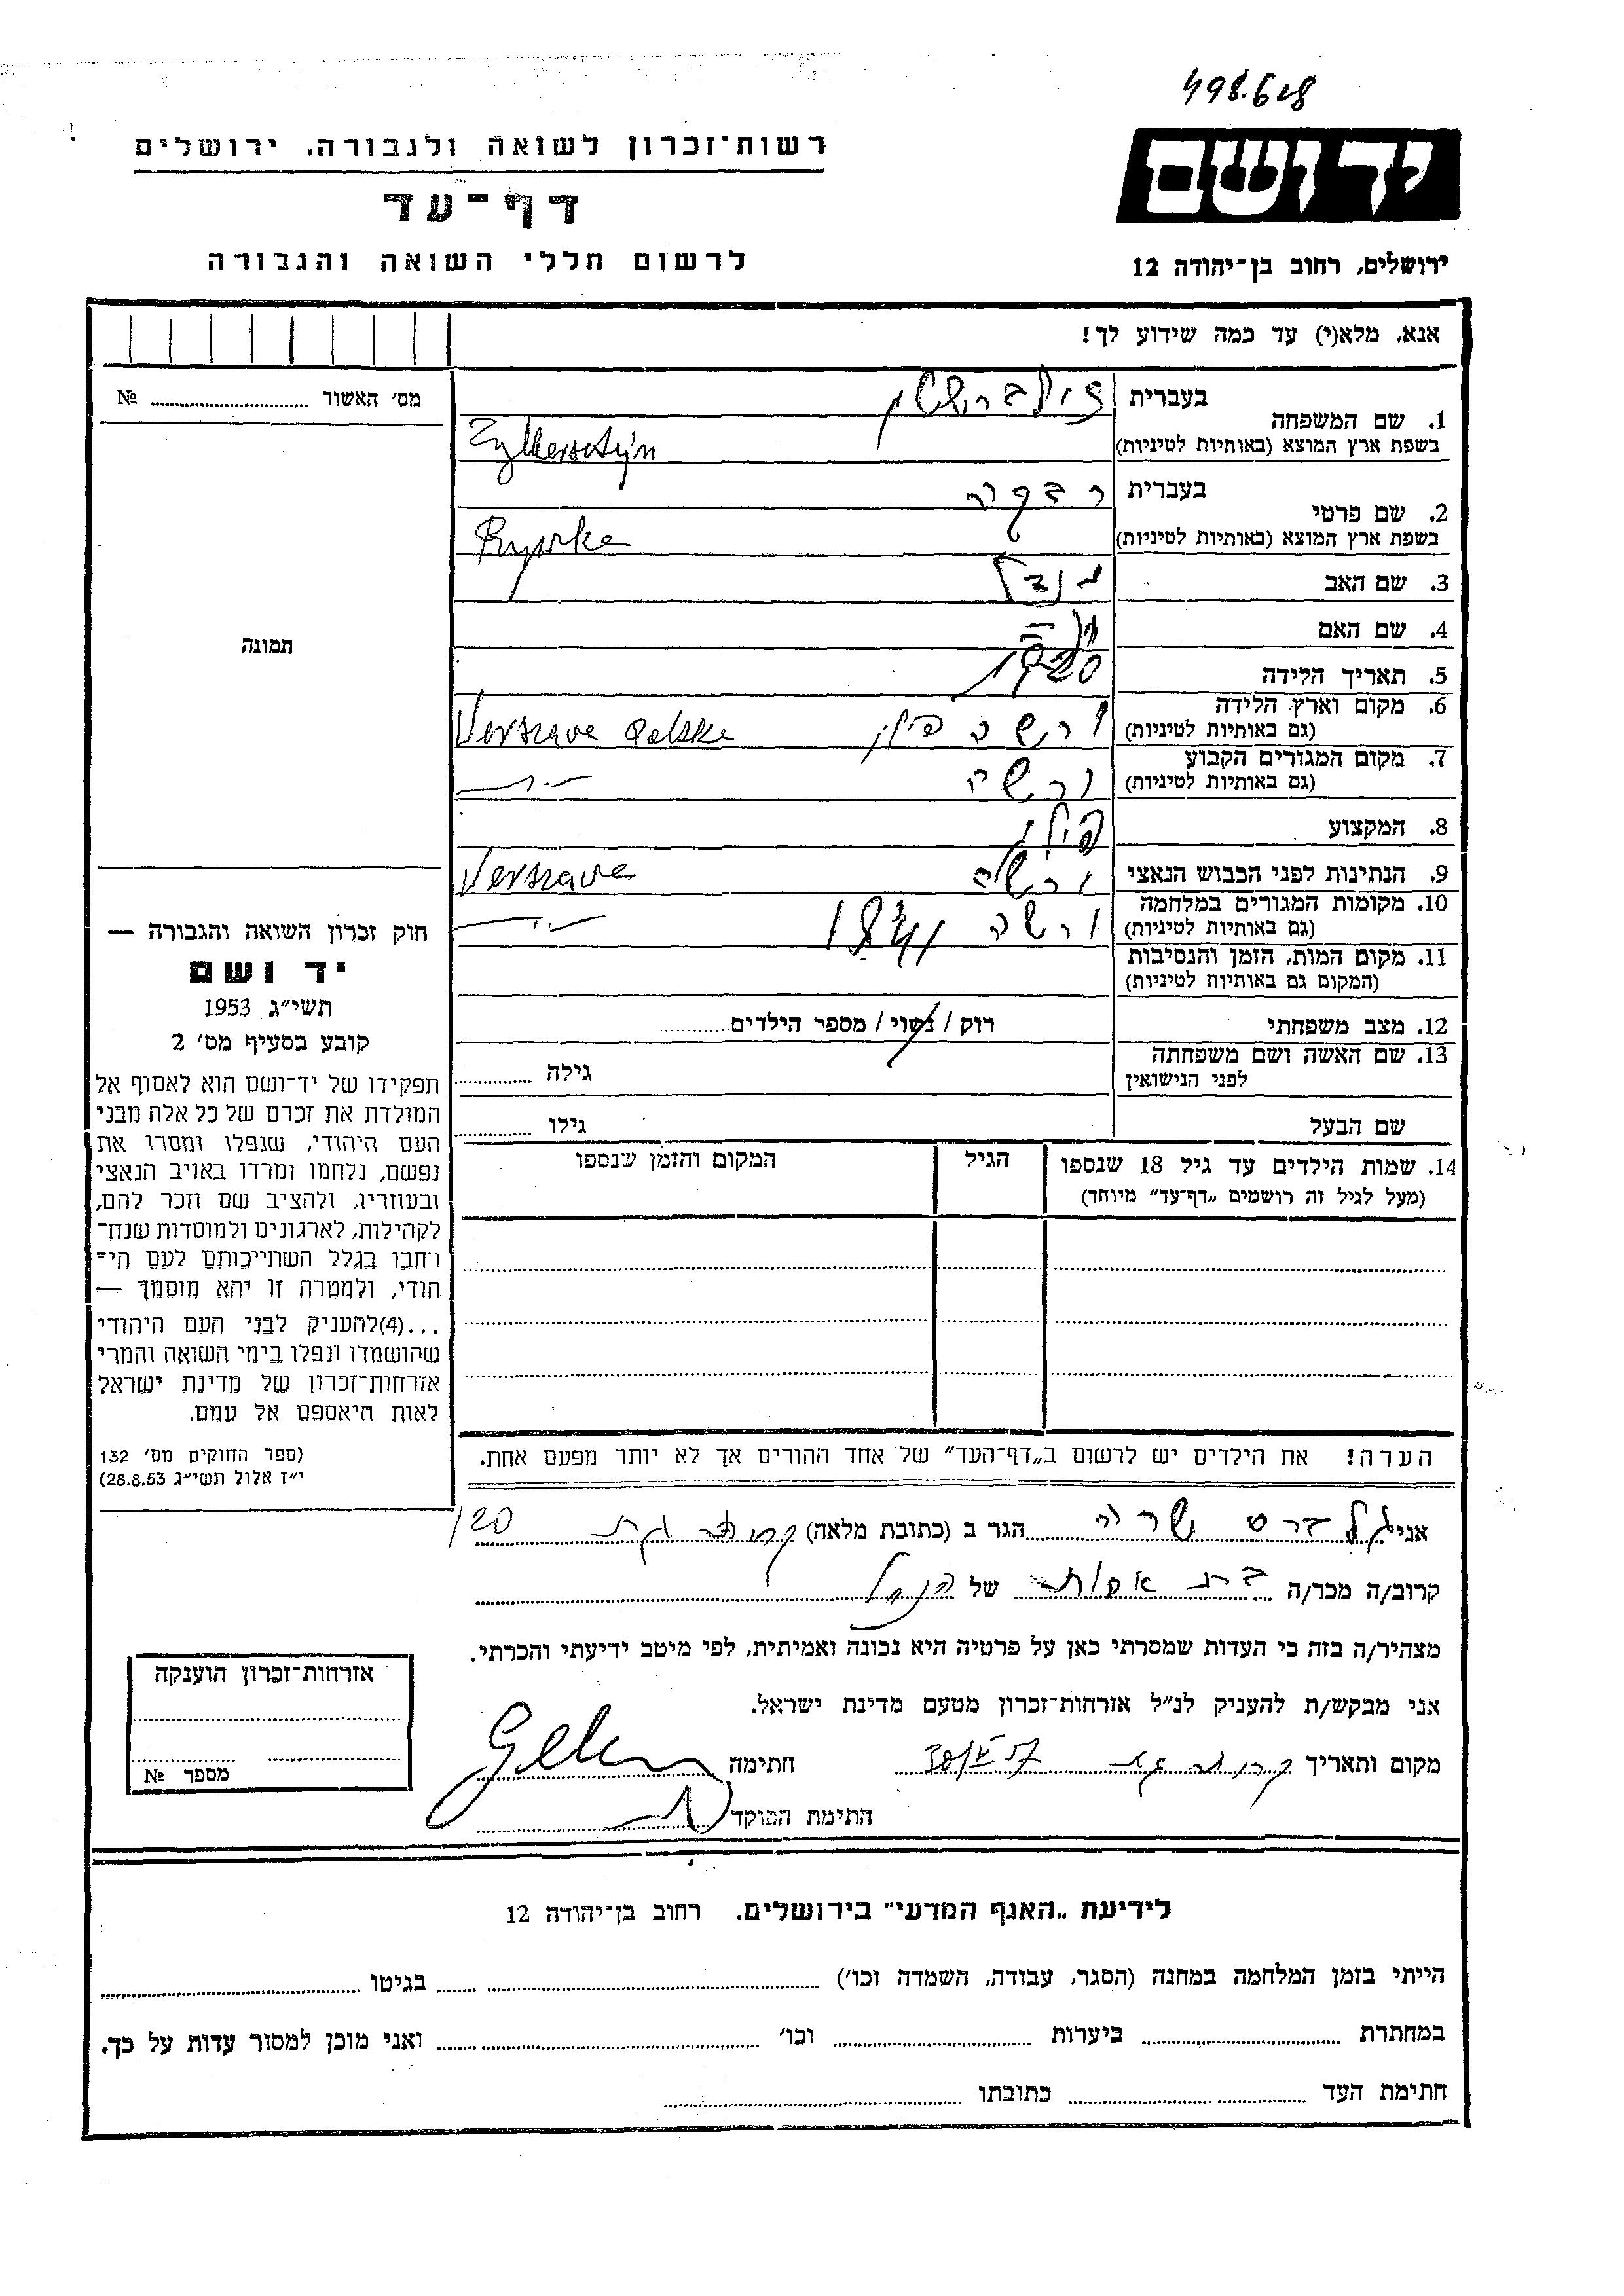 498.618
ידושם
ירושלים, רחוב בן־יהודה 12
רשות־זכרון לשואה ולגבורה, ירושלים
דף־עד
לרשום חללי השואה והגבורה
אנא, מלא(י) עד כמה שידוע לך!
מס׳ האשור № ....................
1. שם המשפחה
בעברית זילברשטין
בשפת ארץ המוצא (באותיות לטיניות) Zylbersztijn
2. שם פרטי
בעברית רבקה
בשפת ארץ המוצא (באותיות לטיניות) Rywke
3. שם האב
4. שם האם
5. תאריך הלידה 1920
6. מקום וארץ הלידה
(גם באותיות לטיניות) ורשה פולין Verszave Polske
7. מקום המגורים הקבוע
(גם באותיות לטיניות) ורשה
8. המקצוע
9. הנתינות לפני הכבוש הנאצי ורשה Verszave
10. מקומות המגורים במלחמה
(גם באותיות לטיניות) ורשה 1941
11. מקום המות, הזמן והנסיבות
(המקום גם באותיות לטיניות)
12. מצב משפחתי רוק / נשוי / מספר הילדים............
13. שם האשה ושם משפחתה
לפני הנישואין גילה ............
שם הבעל גילו ............
14. שמות הילדים עד גיל 18 שנספו
(מעל לגיל זה רושמים „דף־עד” מיוחד)
הגיל
המקום והזמן שנספו
הערה! את הילדים יש לרשום ב„דף־העד” של אחד ההורים אך לא יותר מפעם אחת.
תמונה
חוק זכרון השואה והגבורה —
יד ושם
תשי״ג 1953
קובע בסעיף מס׳ 2
תפקידו של יד־ושם הוא לאסוף אל
המולדת את זכרם של כל אלה מבני
העם היהודי, שנפלו ומסרו את
נפשם, נלחמו ומרדו באויב הנאצי
ובעוזריו, ולהציב שם וזכר להם,
לקהילות, לארגונים ולמוסדות שנח־
רחבו בגלל השתייכותם לעם הי־
הודי, ולמטרה זו יהא מוסמך —
...(4)להעניק לבני העם היהודי
שהושמדו ונפלו בימי השואה והמרי
אזרחות־זכרון של מדינת ישראל
לאות היאספם אל עמם.
(ספר החוקים מס׳ 132
י״ז אלול תשי״ג 28.8.53)
אני שרה הגר ב (כתובת מלאה) קרית גת 120
קרוב/ה מכר/ה בת אחות של הנ״ל
מצהיר/ה בזה כי העדות שמסרתי כאן על פרטיה היא נכונה ואמיתית, לפי מיטב ידיעתי והכרתי.
אני מבקש/ת להעניק לנ״ל אזרחות־זכרון מטעם מדינת ישראל.
מקום ותאריך קרית גת 57 חתימה
חתימת הפוקד
אזרחות־זכרון הוענקה
מספר №
לידיעת „האגף המדעי” בירושלים, רחוב בן־יהודה 12
הייתי בזמן המלחמה במחנה (הסגר, עבודה, השמדה וכו׳) .................... בגיטו ....................
במחתרת .................... ביערות .................... וכו׳ .................... ואני מוכן למסור עדות על כך.
חתימת העד .................... כתובתו ....................